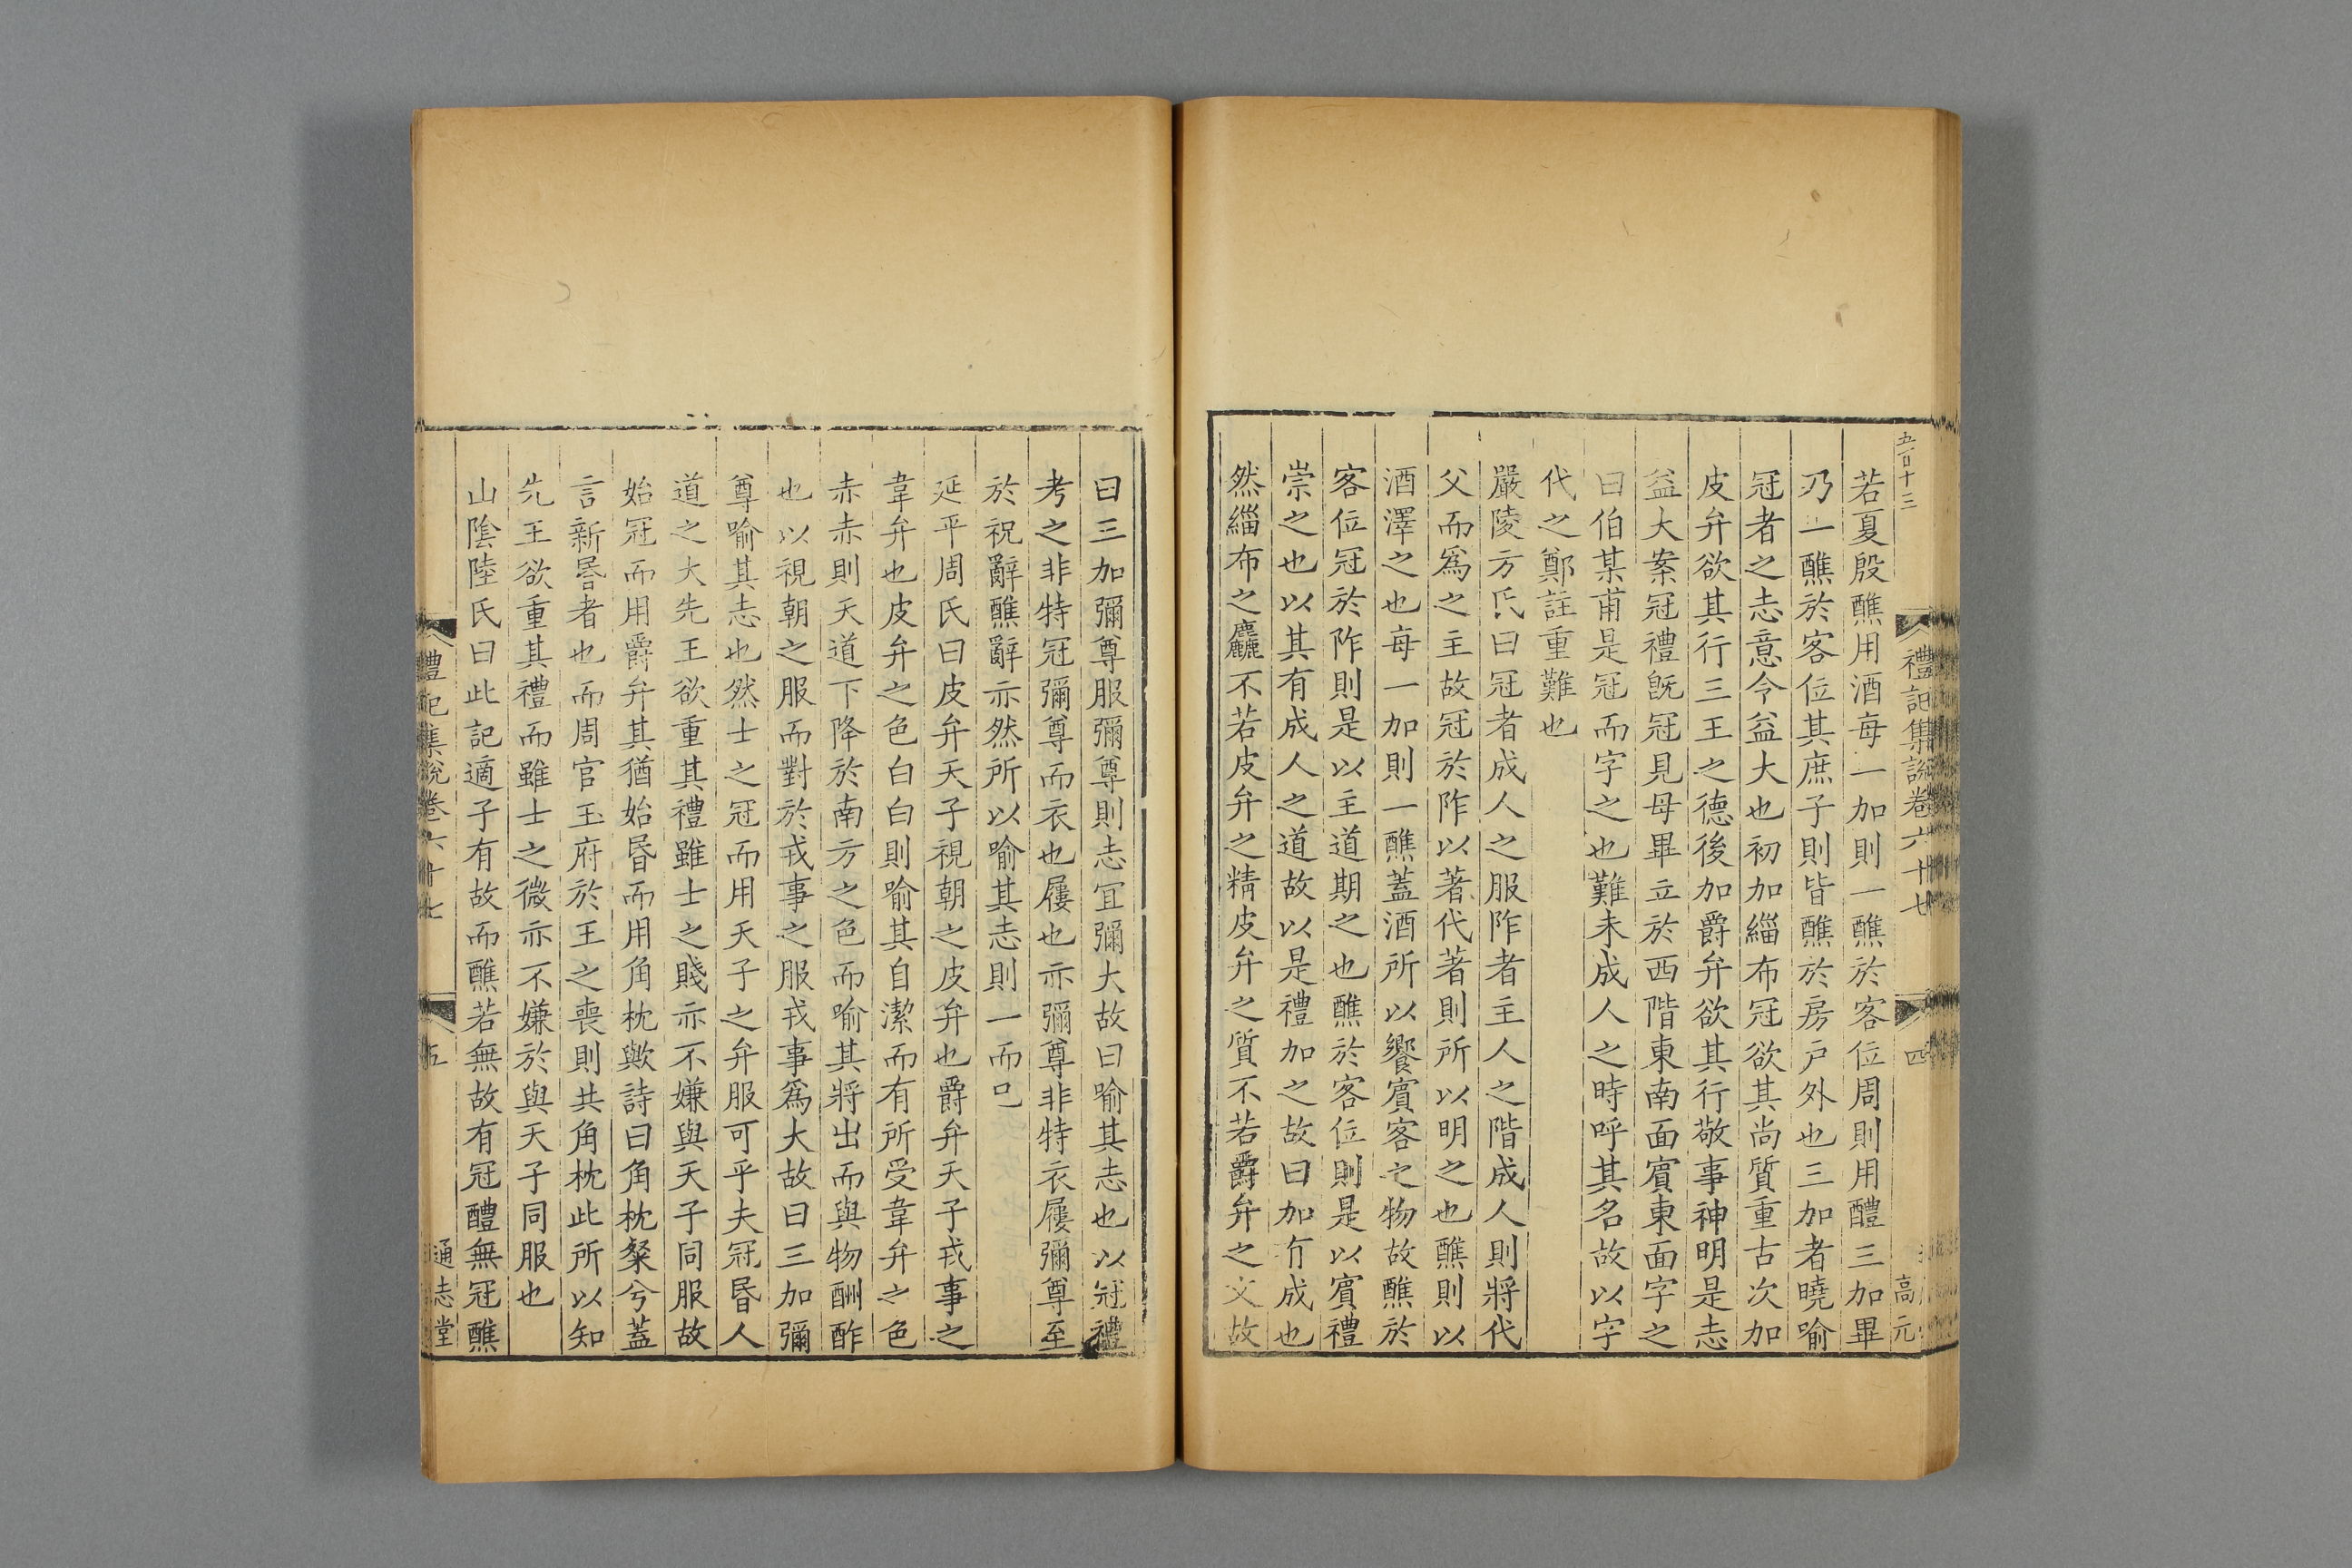 五百十三
禮記集說卷六十七
四
高元
若夏殷醮用酒每一加則一醮於客位周則用醴三加畢
乃一醮於客位其庶子則皆醮於房戶外也三加者曉喻
冠者之志意令益大也初加緇布冠欲其尚質重古次加
皮弁欲其行三王之德後加爵弁欲其行敬事神明是志
益大案冠禮旣冠見母畢立於西階東南面賓東面字之
曰伯某甫是冠而字之也難未成人之時呼其名故以字
代之鄭註重難也
嚴陵方氏曰冠者成人之服阼者主人之階成人則將代
父而爲之主故冠於阼以著代著則所以明之也醮則以
酒澤之也每一加則一醮蓋酒所以饗賓客之物故醮於
客位冠於阼則是以主道期之也醮於客位則是以賓禮
崇之也以其有成人之道故以是禮加之故曰加有成也
然緇布之麤不若皮弁之精皮弁之質不若爵弁之文故
曰三加彌尊服彌尊則志宜彌大故曰喻其志也以冠禮
考之非特冠彌尊而衣也屨也亦彌尊非特衣屨彌尊至
於祝辭醮辭亦然所以喻其志則一而已
延平周氏曰皮弁天子視朝之皮弁也爵弁天子戎事之
韋弁也皮弁之色白白則喻其自潔而有所受韋弁之色
赤赤則天道下降於南方之色而喻其將出而與物酬酢
也以視朝之服而對於戎事之服戎事爲大故曰三加彌
尊喻其志也然士之冠而用天子之弁服可乎夫冠昬人
道之大先王欲重其禮雖士之賤亦不嫌與天子同服故
始冠而用爵弁其猶始昬而用角枕歟詩曰角枕粲兮蓋
言新昬者也而周官玉府於王之喪則共角枕此所以知
先王欲重其禮而雖士之微亦不嫌於與天子同服也
山陰陸氏曰此記適子有故而醮若無故有冠醴無冠醮
禮記集說卷六十七
五
通志堂